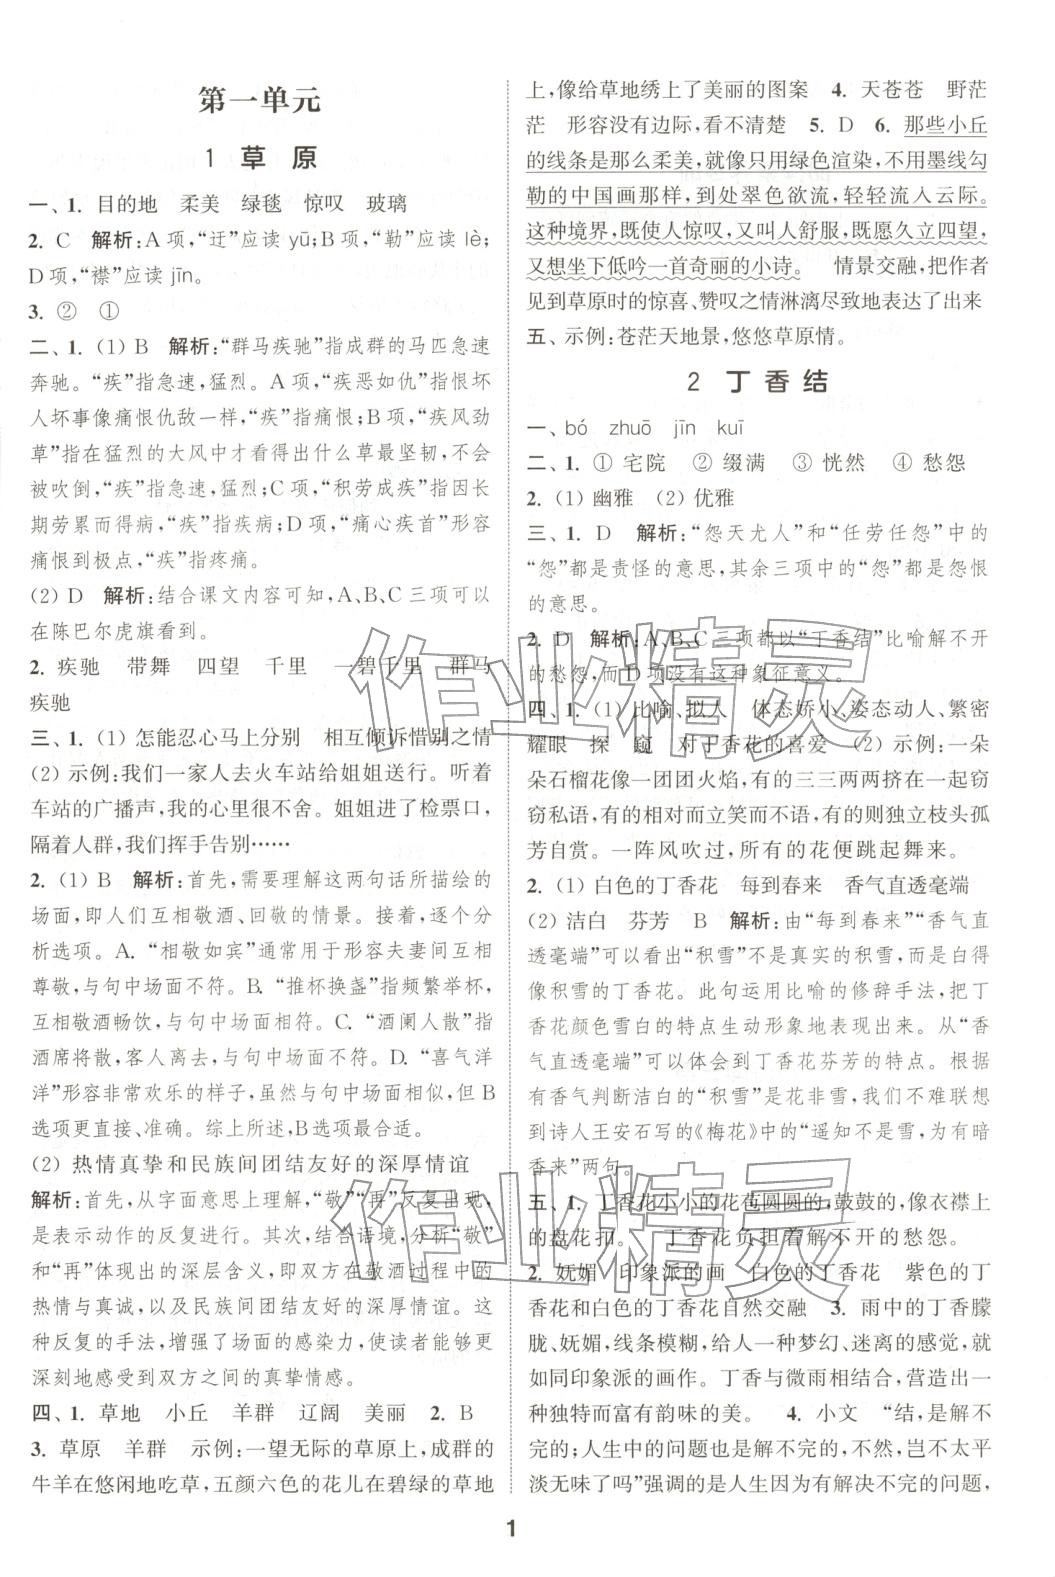 第一单元
1 草 原
一、1. 目的地 柔美 绿毯 惊叹 玻璃
2. C 解析:A项,“迂”应读 yū;B项,“勒”应读 lè;
D项,“襟”应读 jīn。
3. ② ①
二、1. (1) B 解析:“群马疾驰”指成群的马匹急速
奔驰。“疾”指急速,猛烈。A项,“疾恶如仇”指恨坏
人坏事像痛恨仇敌一样,“疾”指痛恨;B项,“疾风劲
草”指在猛烈的大风中才看得出什么草最坚韧,不会
被吹倒,“疾”指急速,猛烈;C项,“积劳成疾”指因长
期劳累而得病,“疾”指疾病;D项,“痛心疾首”形容
痛恨到极点,“疾”指疼痛。
(2) D 解析:结合课文内容可知,A、B、C三项可以
在陈巴尔虎旗看到。
2. 疾驰 带舞 四望 千里 一碧千里 群马
疾驰
三、1. (1) 怎能忍心马上分别 相互倾诉惜别之情
(2) 示例:我们一家人去火车站给姐姐送行。听着
车站的广播声,我的心里很不舍。姐姐进了检票口,
隔着人群,我们挥手告别……
2. (1) B 解析:首先,需要理解这两句话所描绘的
场面,即人们互相敬酒、回敬的情景。接着,逐个分
析选项。A. “相敬如宾”通常用于形容夫妻间互相
尊敬,与句中场面不符。B. “推杯换盏”指频繁举杯,
互相敬酒畅饮,与句中场面相符。C. “酒阑人散”指
酒席将散,客人离去,与句中场面不符。D. “喜气洋
洋”形容非常欢乐的样子,虽然与句中场面相似,但B
选项更直接、准确。综上所述,B选项最合适。
(2) 热情真挚和民族间团结友好的深厚情谊
解析:首先,从字面意思上理解,“敬”“再”反复出现,
是表示动作的反复进行。其次,结合语境,分析“敬”
和“再”体现出的深层含义,即双方在敬酒过程中的
热情与真诚,以及民族间团结友好的深厚情谊。这
种反复的手法,增强了场面的感染力,使读者能够更
深刻地感受到双方之间的真挚情感。
四、1. 草地 小丘 羊群 辽阔 美丽 2. B
3. 草原 羊群 示例:一望无际的草原上,成群的
牛羊在悠闲地吃草,五颜六色的花儿在碧绿的草地
上,像给草地绣上了美丽的图案 4. 天苍苍 野茫
茫 形容没有边际,看不清楚 5. D 6. 那些小丘
的线条是那么柔美,就像只用绿色渲染,不用墨线勾
勒的中国画那样,到处翠色欲流,轻轻流入云际。
这种境界,既使人惊叹,又叫人舒服,既愿久立四望,
又想坐下低吟一首奇丽的小诗。 情景交融,把作者
见到草原时的惊喜、赞叹之情淋漓尽致地表达了出来
五、示例:苍茫天地景,悠悠草原情。
2 丁 香 结
一、bó zhuō jīn kuī
二、1. ① 宅院 ② 缀满 ③ 恍然 ④ 愁怨
2. (1) 幽雅 (2) 优雅
三、1. D 解析:“怨天尤人”和“任劳任怨”中的
“怨”都是责怪的意思,其余三项中的“怨”都是怨恨
的意思。
2. D 解析:A、B、C三项都以“丁香结”比喻解不开
的愁怨,而D项没有这种象征意义。
四、1. (1) 比喻、拟人 体态娇小、姿态动人、繁密
耀眼 探 窥 对丁香花的喜爱 (2) 示例:一朵
朵石榴花像一团团火焰,有的三三两两挤在一起窃
窃私语,有的相对而立笑而不语,有的则独立枝头孤
芳自赏。一阵风吹过,所有的花便跳起舞来。
2. (1) 白色的丁香花 每到春来 香气直透毫端
(2) 洁白 芬芳 B 解析:由“每到春来”“香气直
透毫端”可知这里的“积雪”不是真实的积雪,而是白得
像积雪的丁香花。此句运用比喻的修辞手法,把丁
香花颜色雪白的特点生动形象地表现出来。从“香
气直透毫端”可以体会到丁香花芬芳的特点。根据
有香气判断洁白的“积雪”是花非雪,我们不难联想
到诗人王安石写的《梅花》中的“遥知不是雪,为有暗
香来”两句。
五、1. 丁香花小小的花苞圆圆的,鼓鼓的,像衣襟上
的盘花扣。 丁香花负担着解不开的愁怨。
2. 妩媚 印象派的画 白色的丁香花 紫色的丁
香花和白色的丁香花自然交融 3. 雨中的丁香朦
胧、妩媚,线条模糊,给人一种梦幻、迷离的感觉,就
如同印象派的画作。丁香与微雨相结合,营造出一
种独特而富有韵味的美。 4. 小文 “结,是解不
完的;人生中的问题也是解不完的,不然,岂不太平
淡无味了吗”强调的是人生因为有解决不完的问题,
作业精灵
作业精灵
1